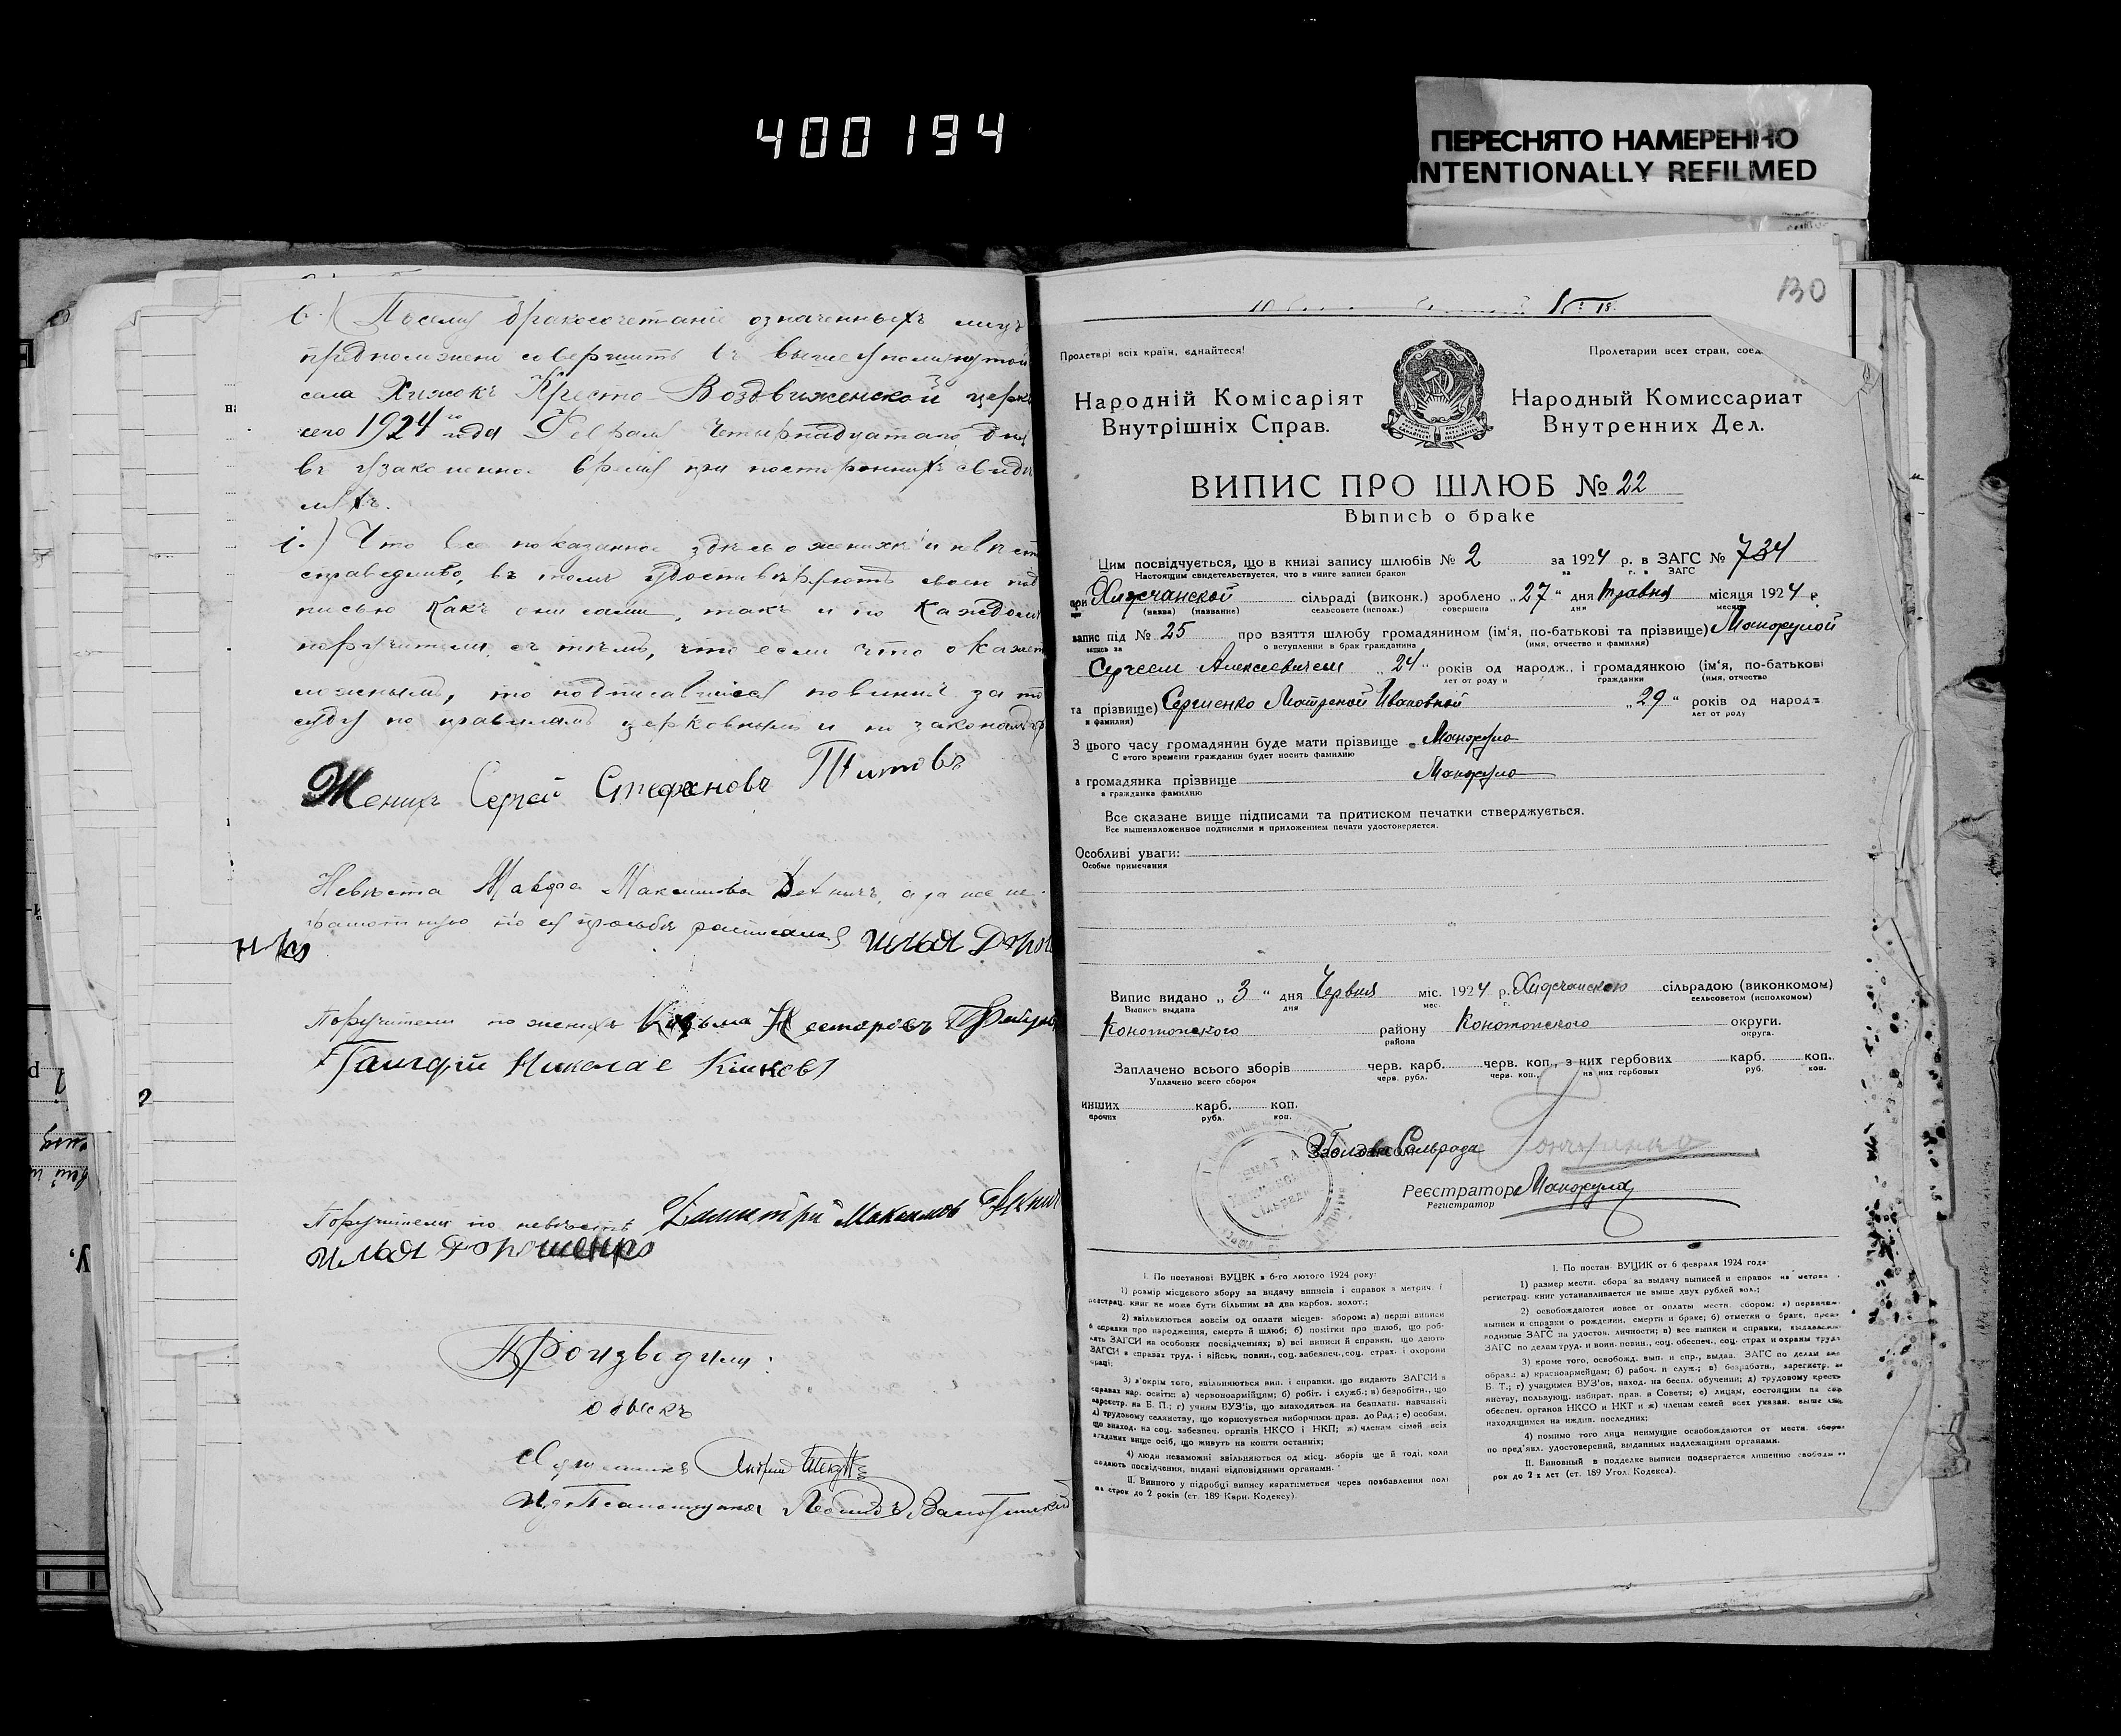 400194
ПЕРЕСНЯТО НАМЕРЕННО
INTENTIONALLY REFILMED
Посему бракосочетаніе означенныхъ лицъ
предположено совершить въ вышеупомянутой
села Хижокъ Кресто-Воздвиженской церкв
сего 1924 года Февраля Четырнадцатаго дня
въ узаконенное время при постороннихъ свиде
ляхъ.
Что все показанное здѣсь о женихѣ и невѣст
справедливо, въ томъ удостовѣряютъ своею под
писью какъ они сами, такъ и по каждом
поручители, съ тѣмъ, что если что окажет
ложнымъ, то подписавшіеся повинны за то
суду по правиламъ церковнымъ и по законамъ гр
Женихъ Сергей Стефановъ Титовъ
Невѣста Мавра Максимова а за нее не-
грамотную по ея просьбѣ расписался Илья Доро
нко
Поручители по женихѣ Козьма Несторовъ
Николае
Поручители по невѣстѣ Димитрій Максимов
Илья Дорошенко
Производили
обыскъ
Священникъ Андрей
Псаломщика Леонидъ
130
Пролетарі всіх країн, єднайтеся!
Пролетарии всех стран, соед.
Народній Комісаріят
Внутрішніх Справ.
Народный Комиссариат
Внутренних Дел.
ВИПИС ПРО ШЛЮБ № 22
Выпись о браке
Цим посвідчується, що в книзі запису шлюбів № 2 за 1924 р. в ЗАГС № 734
Настоящим свидетельствуется, что в книге записи браков за г. в ЗАГС
при Хижчанской сільраді (виконк.) зроблено „27“ дня травня місяця 1924 р.
(назва) (название) сельсовете (исполк.) совершена дня месяца
запис під № 25 про взяття шлюбу громадянином (ім'я, по-батькові та прізвище) Манжулой
запись за о вступлении в брак гражданина (имя, отчество и фамилия)
Сергеем Алексеевичем „24“ років од народж., і громадянкою (ім'я, по-батькові
лет от роду и гражданки (имя, отчество
та прізвище) Сергиенко Матреной Ивановной „29“ років од народ
и фамилия) лет от роду
З цього часу громадянин буде мати прізвище Манжула
С этого времени гражданин будет носить фамилию
а громадянка прізвище Манжула
а гражданка фамилию
Все сказане вище підписами та притиском печатки стверджується.
Все вышеизложенное подписями и приложением печати удостоверяется.
Особливі уваги:
Особые примечания
Випис видано „3“ дня Червня міс. 1924 р. Хижчанскою сільрадою (виконкомом)
Выпись выдана дня мес. г. сельсоветом (исполкомом)
Конотопского району Конотопского округи.
района округа.
Заплачено всього зборів черв. карб. черв. коп., з них гербових карб. коп.
Уплачено всего сборов черв. рубл. черв. коп., на них гербовых руб. коп.
инших карб. коп.
прочих рубл. коп.
Голова Сельрады Гончаренко
Реєстратор Манжула
Регистратор
І. По постанові ВУЦВК в 6-го лютого 1924 року:
1) розмір місцевого збору за видачу виписів і справок з метрич. і
реєстрац. книг не може бути більшим за два карбов. золот.;
2) звільняються зовсім од оплати місцев. збором: а) перші виписи
й справки про народження, смерть й шлюб; б) помітки про шлюб, що роб-
лять ЗАГСИ на особових посвідченнях; в) всі виписи й справки, що дають
ЗАГСИ в справах труд. і військ, повин., соц. забезпеч., соц. страх. і охорони
праці;
3) з'окрім того, звільняються вип. і справки, що видають ЗАГСИ в
справах нар. освіти: а) червоноармійцям; б) робіт. і служб.; в) безробітн., що
зареєстр. на Б. П.; г) учням ВУЗ'ів, що знаходяться на безплатн. навчанні;
д) трудовому селянству, що користується виборчими прав. до Рад.; е) особам,
що знаход. на соц. забезпеч. органів НКСО і НКП; ж) членам сімей всіх
згаданих вище осіб, що живуть на кошти останніх;
4) люди незаможні звільняються од місц. зборів ще й тоді, коли
подають посвідчення, видані відповідними органами.
ІІ. Винного у підробці випису каратиметься через позбавлення волі
на строк до 2 років (ст. 189 Карн. Кодексу).
І. По постан. ВУЦИК от 6 февраля 1924 года
1) размер местн. сбора за выдачу выписей и справок из метрич.
регистрац. книг устанавливается не выше двух рублей зол.;
2) освобождаются вовсе от оплаты местн. сбором: а) первичн.
выписи и справки о рождении, смерти и браке; б) отметки о браке, произ-
водимые ЗАГС на удостов. личности; в) все выписи и справки, выдаваемые
ЗАГС по делам труд. и воин. повин., соц. обеспеч., соц. страх и охраны труда
3) кроме того, освобожд. вып. и спр., выдав. ЗАГС по делам нар
образ.: а) красноармейцам; б) рабоч. и служ.; в) безработн., зарегистр. на
Б. Т.; г) учащимся ВУЗ'ов, наход. на беспл. обучении; д) трудовому кресть
янству, пользующ. избират. прав. в Советы; е) лицам, состоящим на соц
обеспеч. органов НКСО и НКТ и ж) членам семей всех указан. выше лиц,
находящимся на иждив. последних;
4) помимо того лица неимущие освобождаются от местн. сборов
по пред'явл. удостоверений, выданных надлежащими органами.
ІІ. Виновный в подделке выписи подвергается лишению свободы на
срок до 2 х лет (ст. 189 Угол. Кодекса).